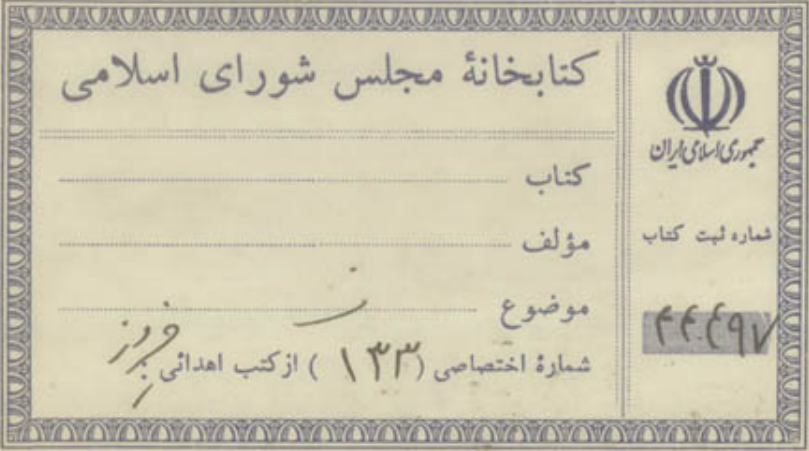 کتابخانهٔ مجلس شورای اسلامی
کتاب
مؤلف
موضوع
شمارهٔ اختصاصی (۱۳۳) از کتب اهدائی:
جمهوری اسلامی ایران
شماره ثبت کتاب